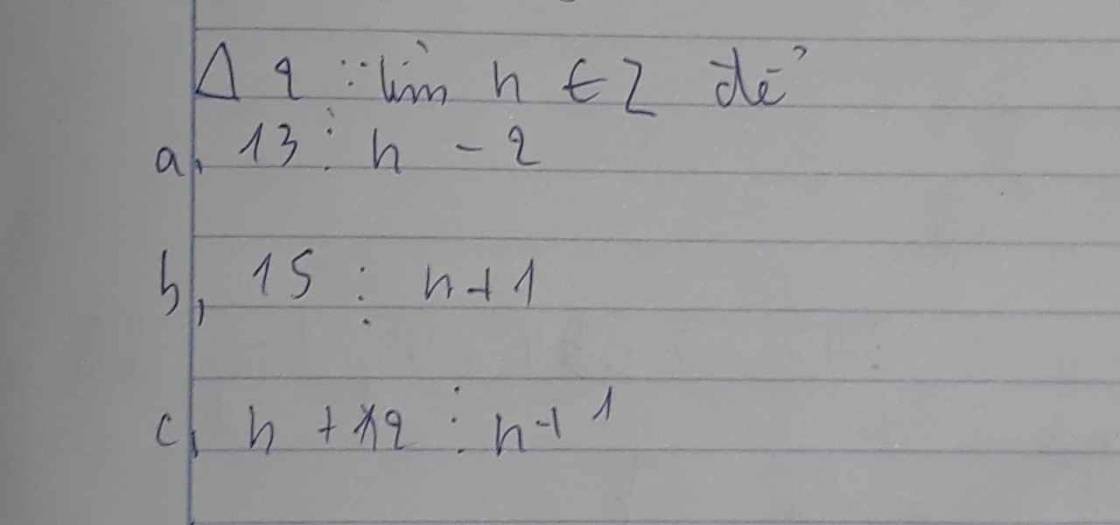 Δ 2 : tìm n ∈ Z để
a, 13 ⋮ n - 2
b, 15 ⋮ n + 1
c, n + 12 ⋮ n + 1